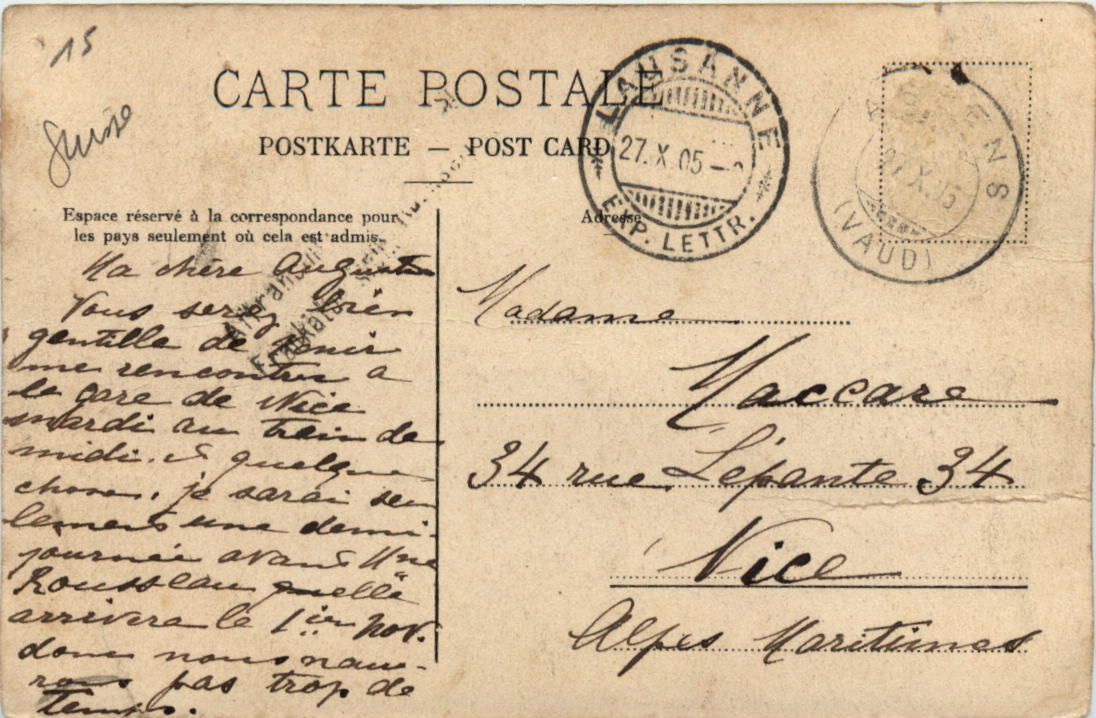 15
Suisse
CARTE POSTALE
POSTKARTE — POST CARD
Espace réservé à la correspondance pour
les pays seulement où cela est admis.
Adresse
LAUSANNE
27. X. 05
EXP. LETTR.
(VAUD)
Ma chère Augustine
Vous serez bien
gentille de venir
me rencontrer a
la gare de Nice
mardi au train de
midi et quelque
chose, je sarai seu
lement une demi-
journée avant Mme
Rousseau quelle
arrivera le 1ier Nov.
donc nous nau-
rons pas trop de
temps.
Madame
Maccare
34 rue Lépante 34
Nice
Alpes Maritimes